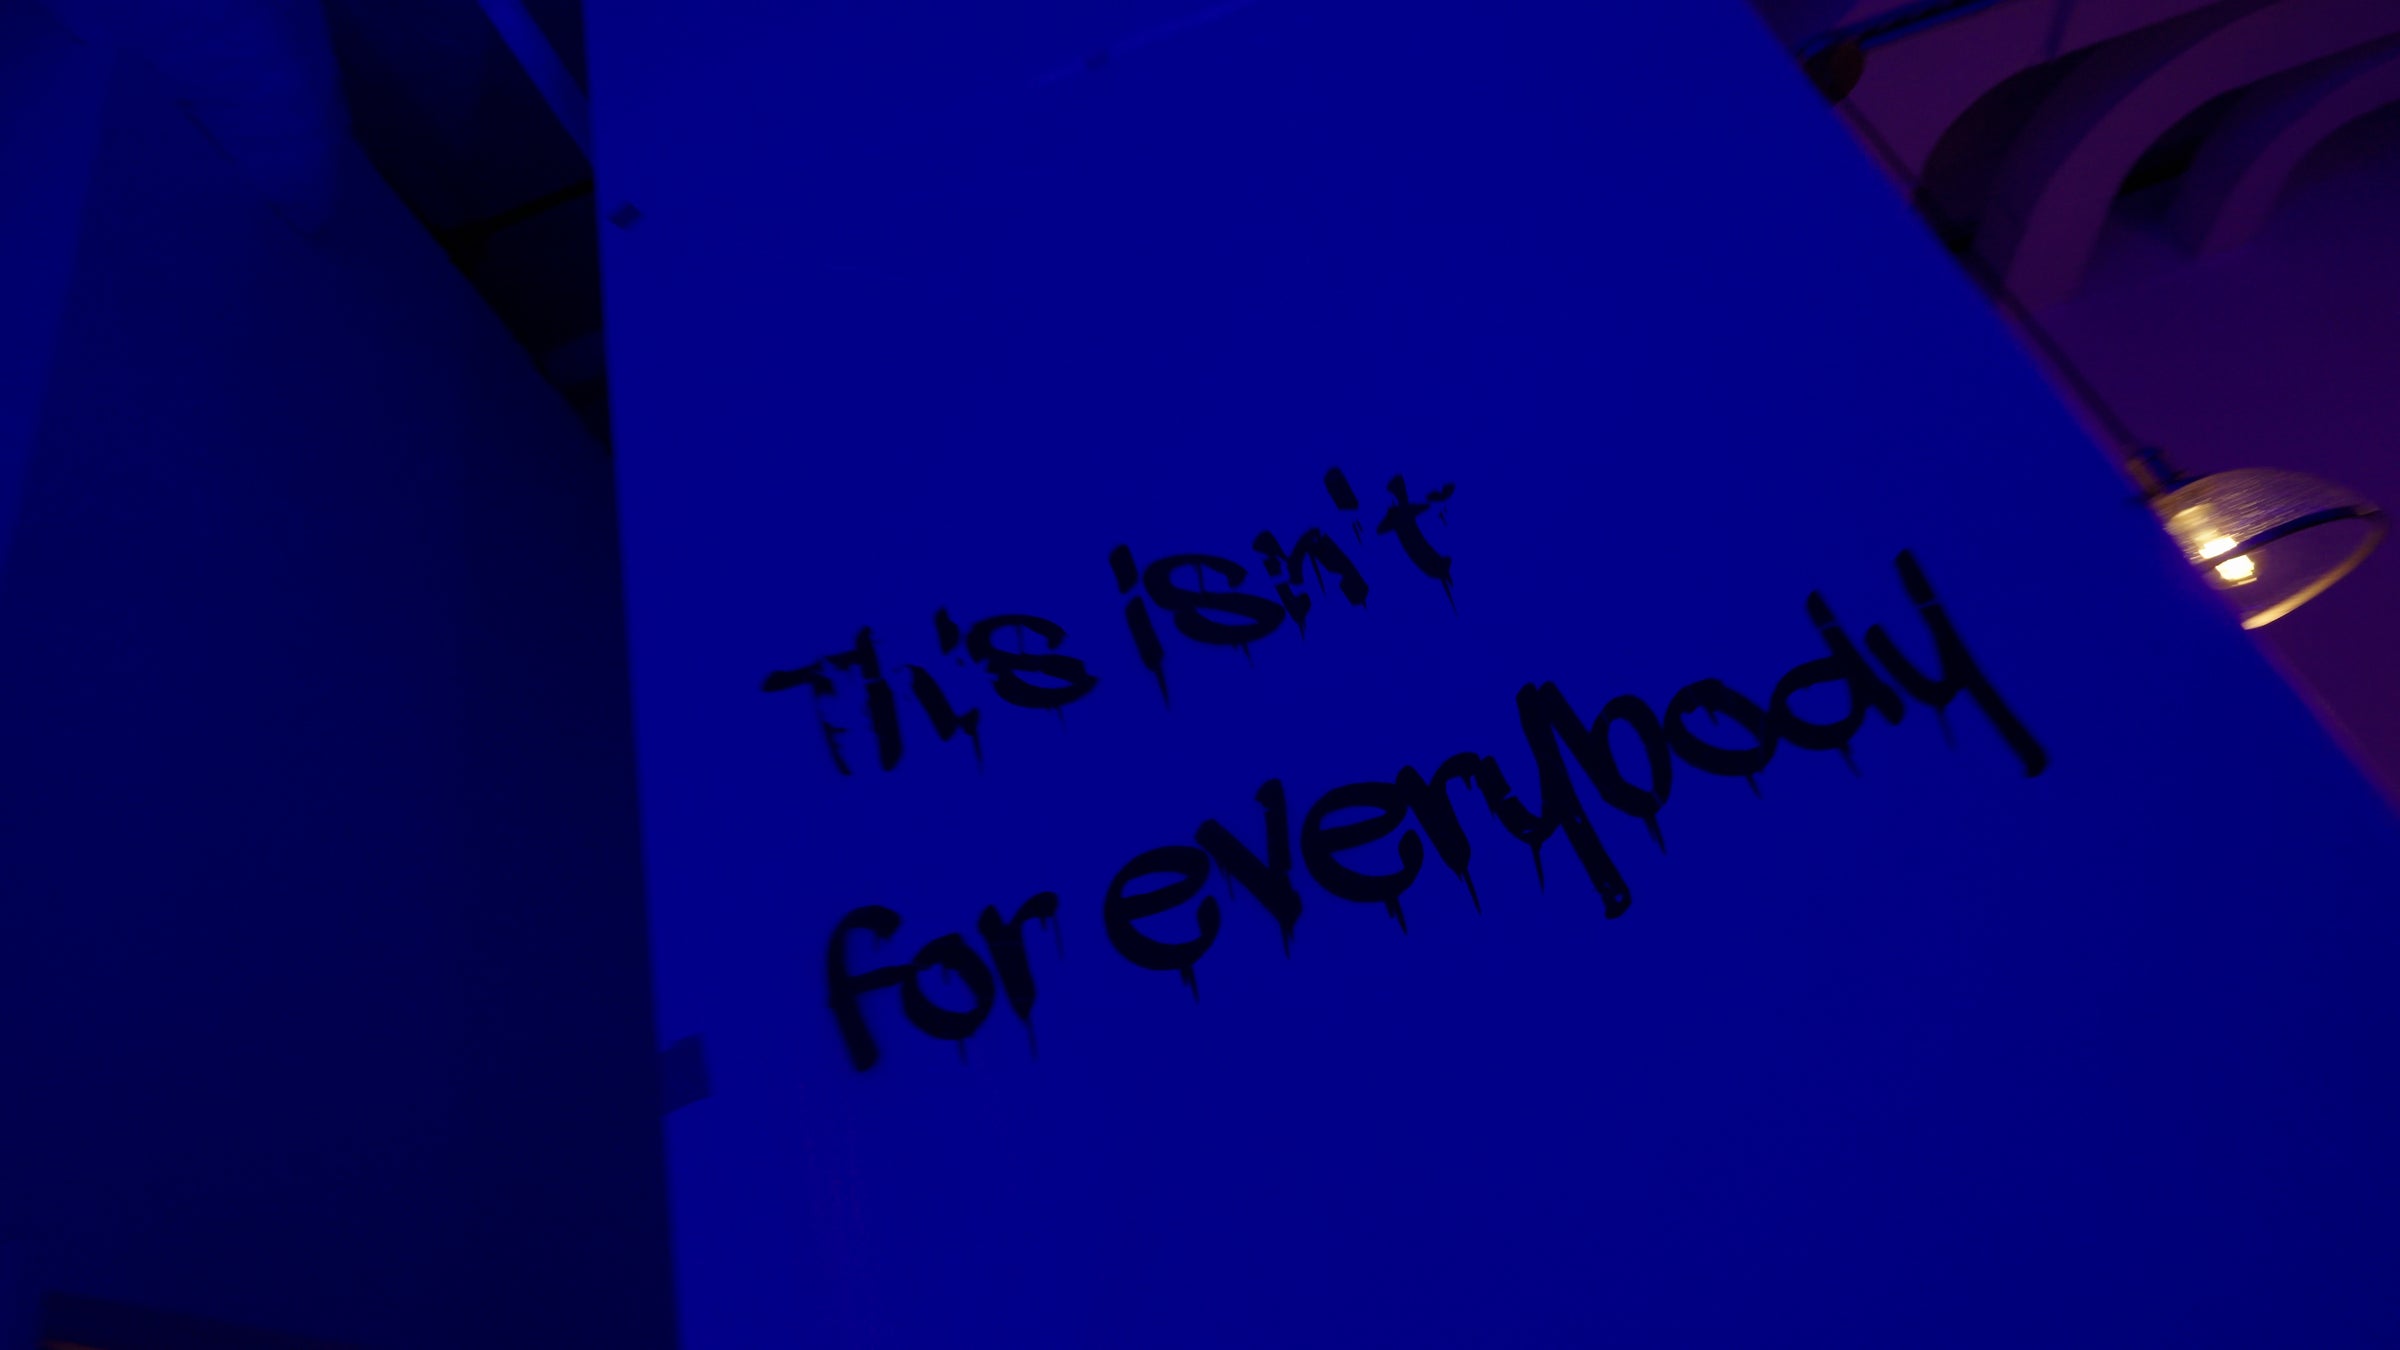 This isn't
for everybody